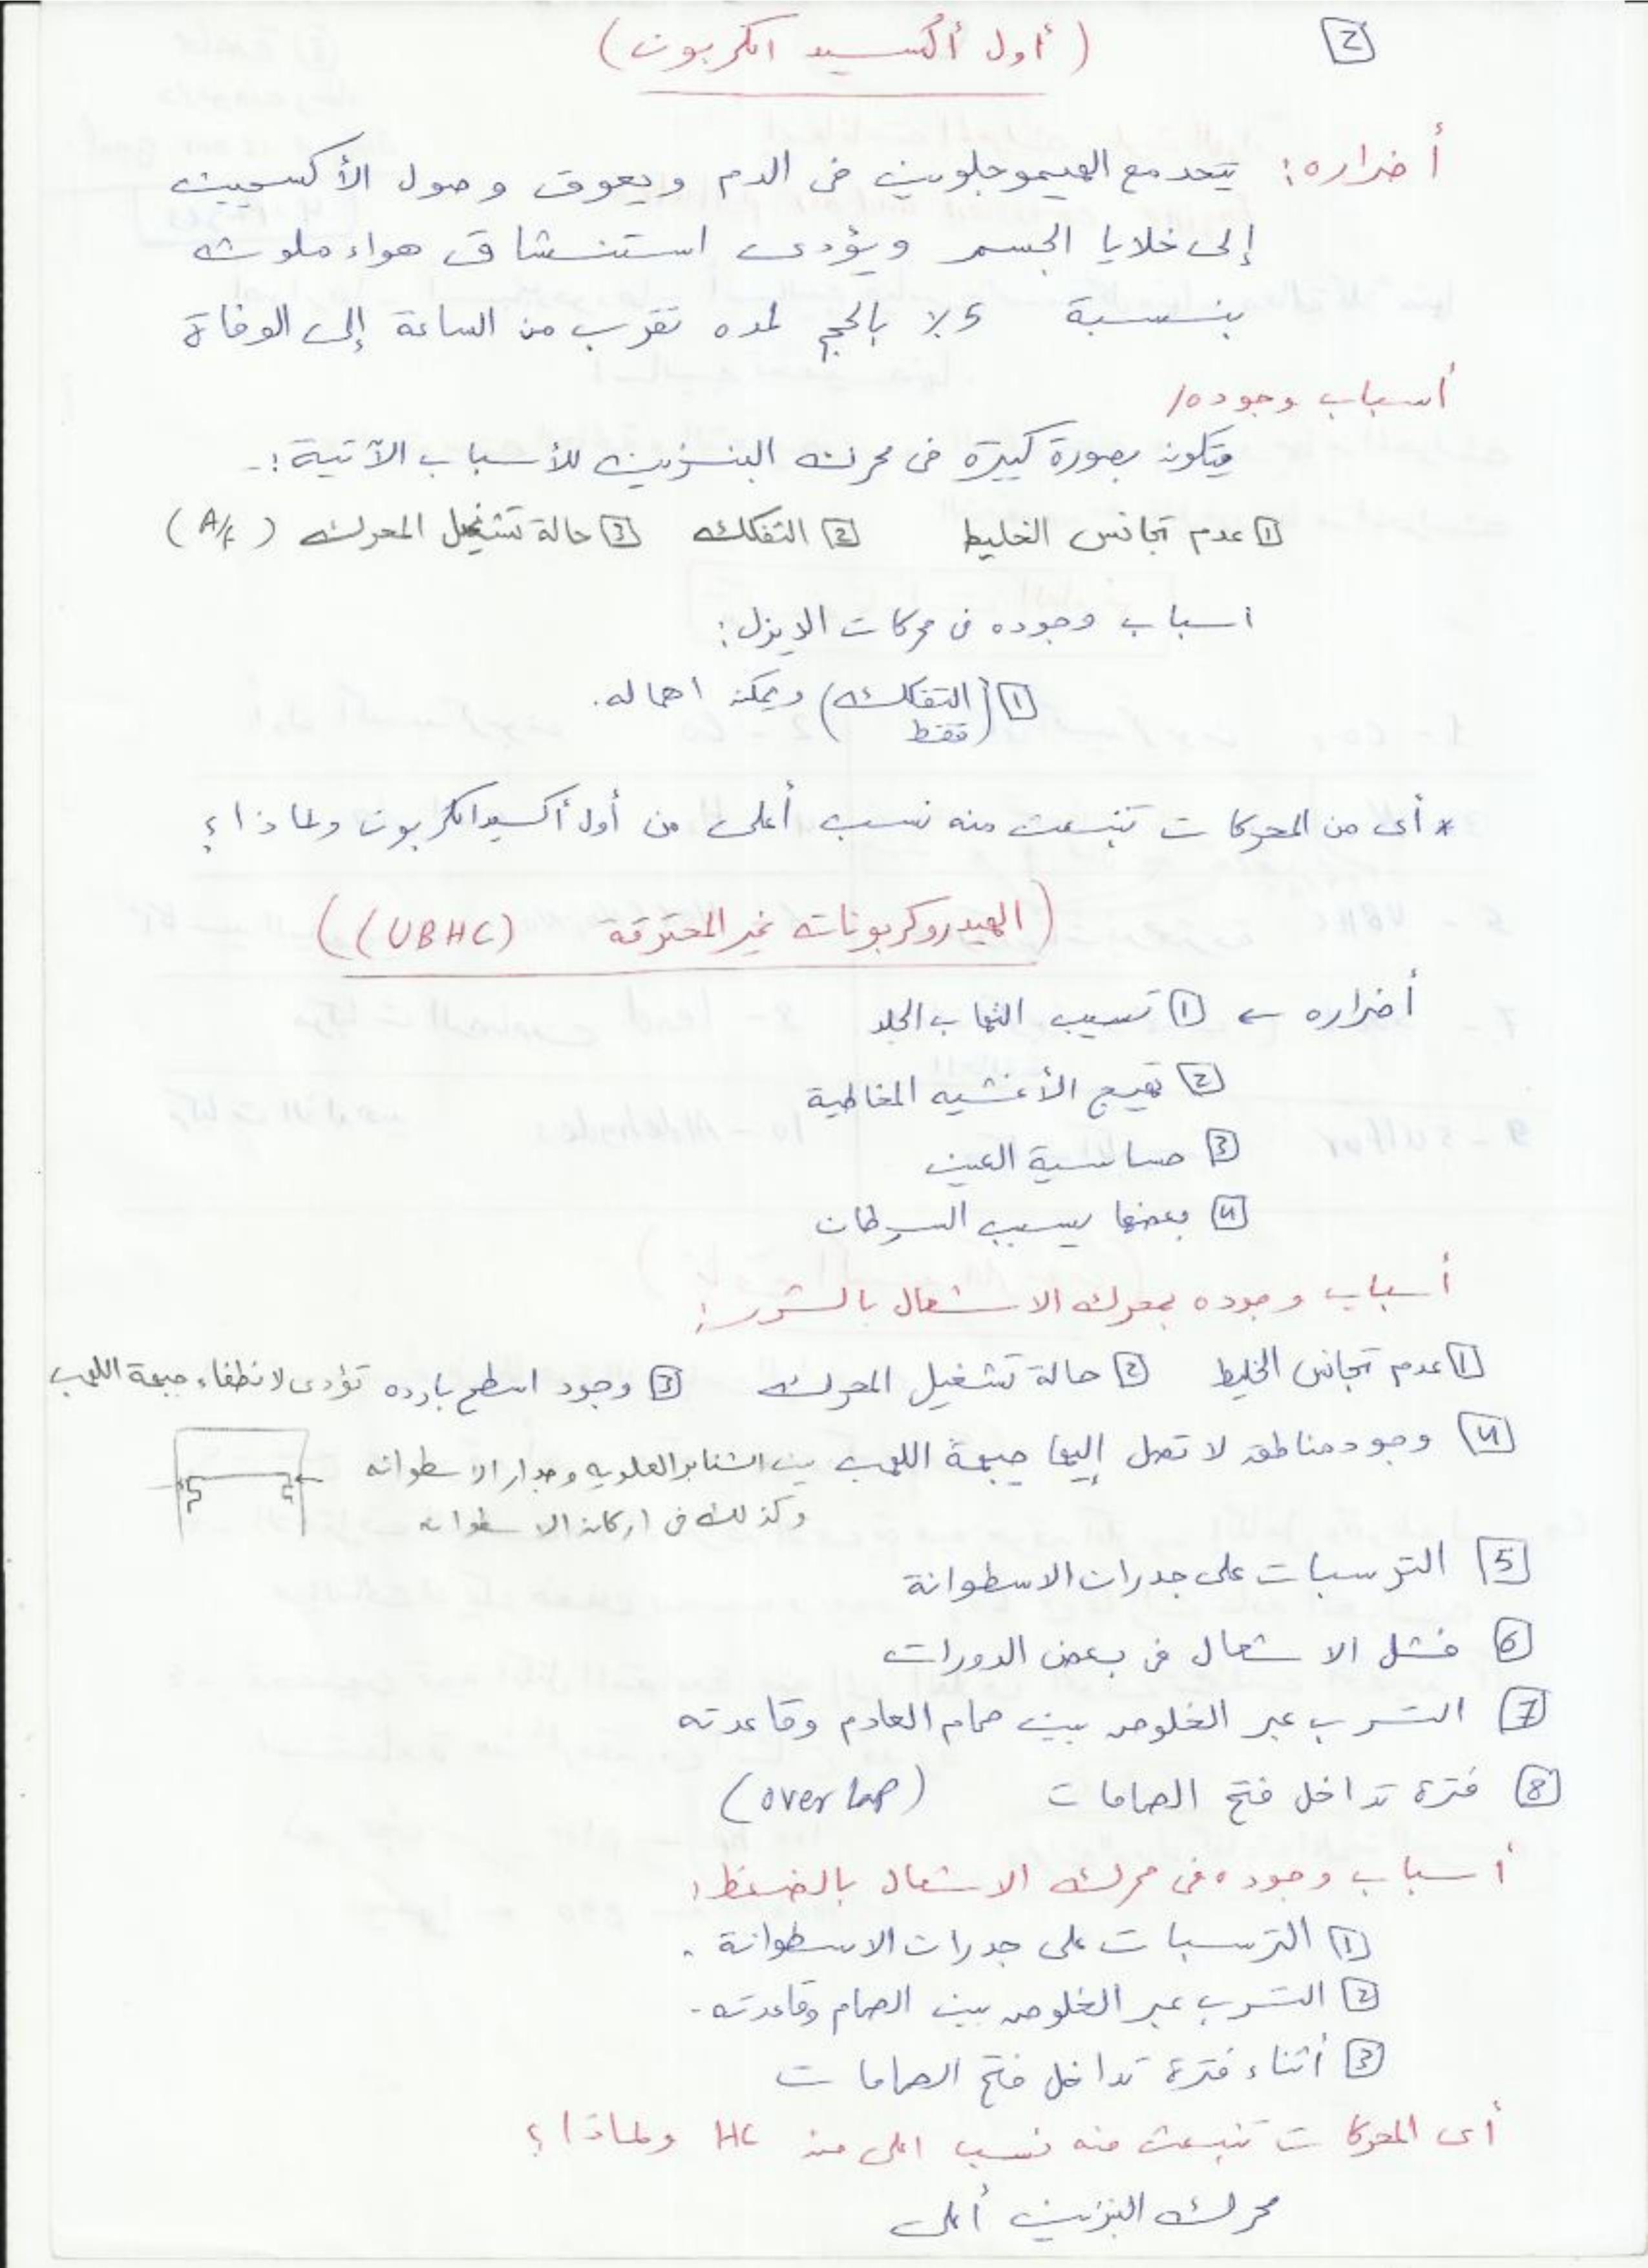 2
(أول أكسيد الكربون)
أضراره: يتحد مع الهيموجلوبين فى الدم ويعوق وصول الأكسجين
إلى خلايا الجسم ويؤدى استنشاق هواء ملوث
بنسبة 5% بالحجم لمده تقرب من الساعة إلى الوفاة
أسباب وجوده/
يتكون بصورة كبيرة فى محرك البنزين للأسباب الآتية:-
1 عدم تجانس الخليط 2 التفكك 3 حالة تشغيل المحرك (A/F)
اسباب وجوده فى محركات الديزل:
1 (التفكك) ويمكن اهماله.
(فقط
* أى من المحركات تنبعث منه نسب أعلى من أول أكسيد الكربون ولماذا؟
(الهيدروكربونات غير المحترقة (UBHC))
أضراره ← 1 تسبب التهاب الجلد
2 تهيج الأغشيه المخاطية
3 حساسية العين
4 بعضها يسبب السرطان
أسباب وجوده بمحرك الاشعال بالشرر:
1 عدم تجانس الخليط 2 حالة تشغيل المحرك 3 وجود اسطح بارده تؤدى لانطفاء جبهة اللهب
4 وجود مناطق لا تصل إليها جبهة اللهب بين الشنابر العلويه وجدار الاسطوانه
وكذلك فى اركان الاسطوانه
5 الترسبات على جدران الاسطوانة
6 فشل الاشعال فى بعض الدورات
7 التسرب عبر الخلوص بين صمام العادم وقاعدته
8 فترة تداخل فتح الصمامات (overlap)
أسباب وجوده فى محرك الاشعال بالضغط:
1 الترسبات على جدران الاسطوانة.
2 التسرب عبر الخلوص بين الصمام وقاعدته-
3 أثناء فترة تداخل فتح الصمامات
أى المحركات تنبعث منه نسب اعلى من HC ولماذا؟
محرك البنزين أعلى